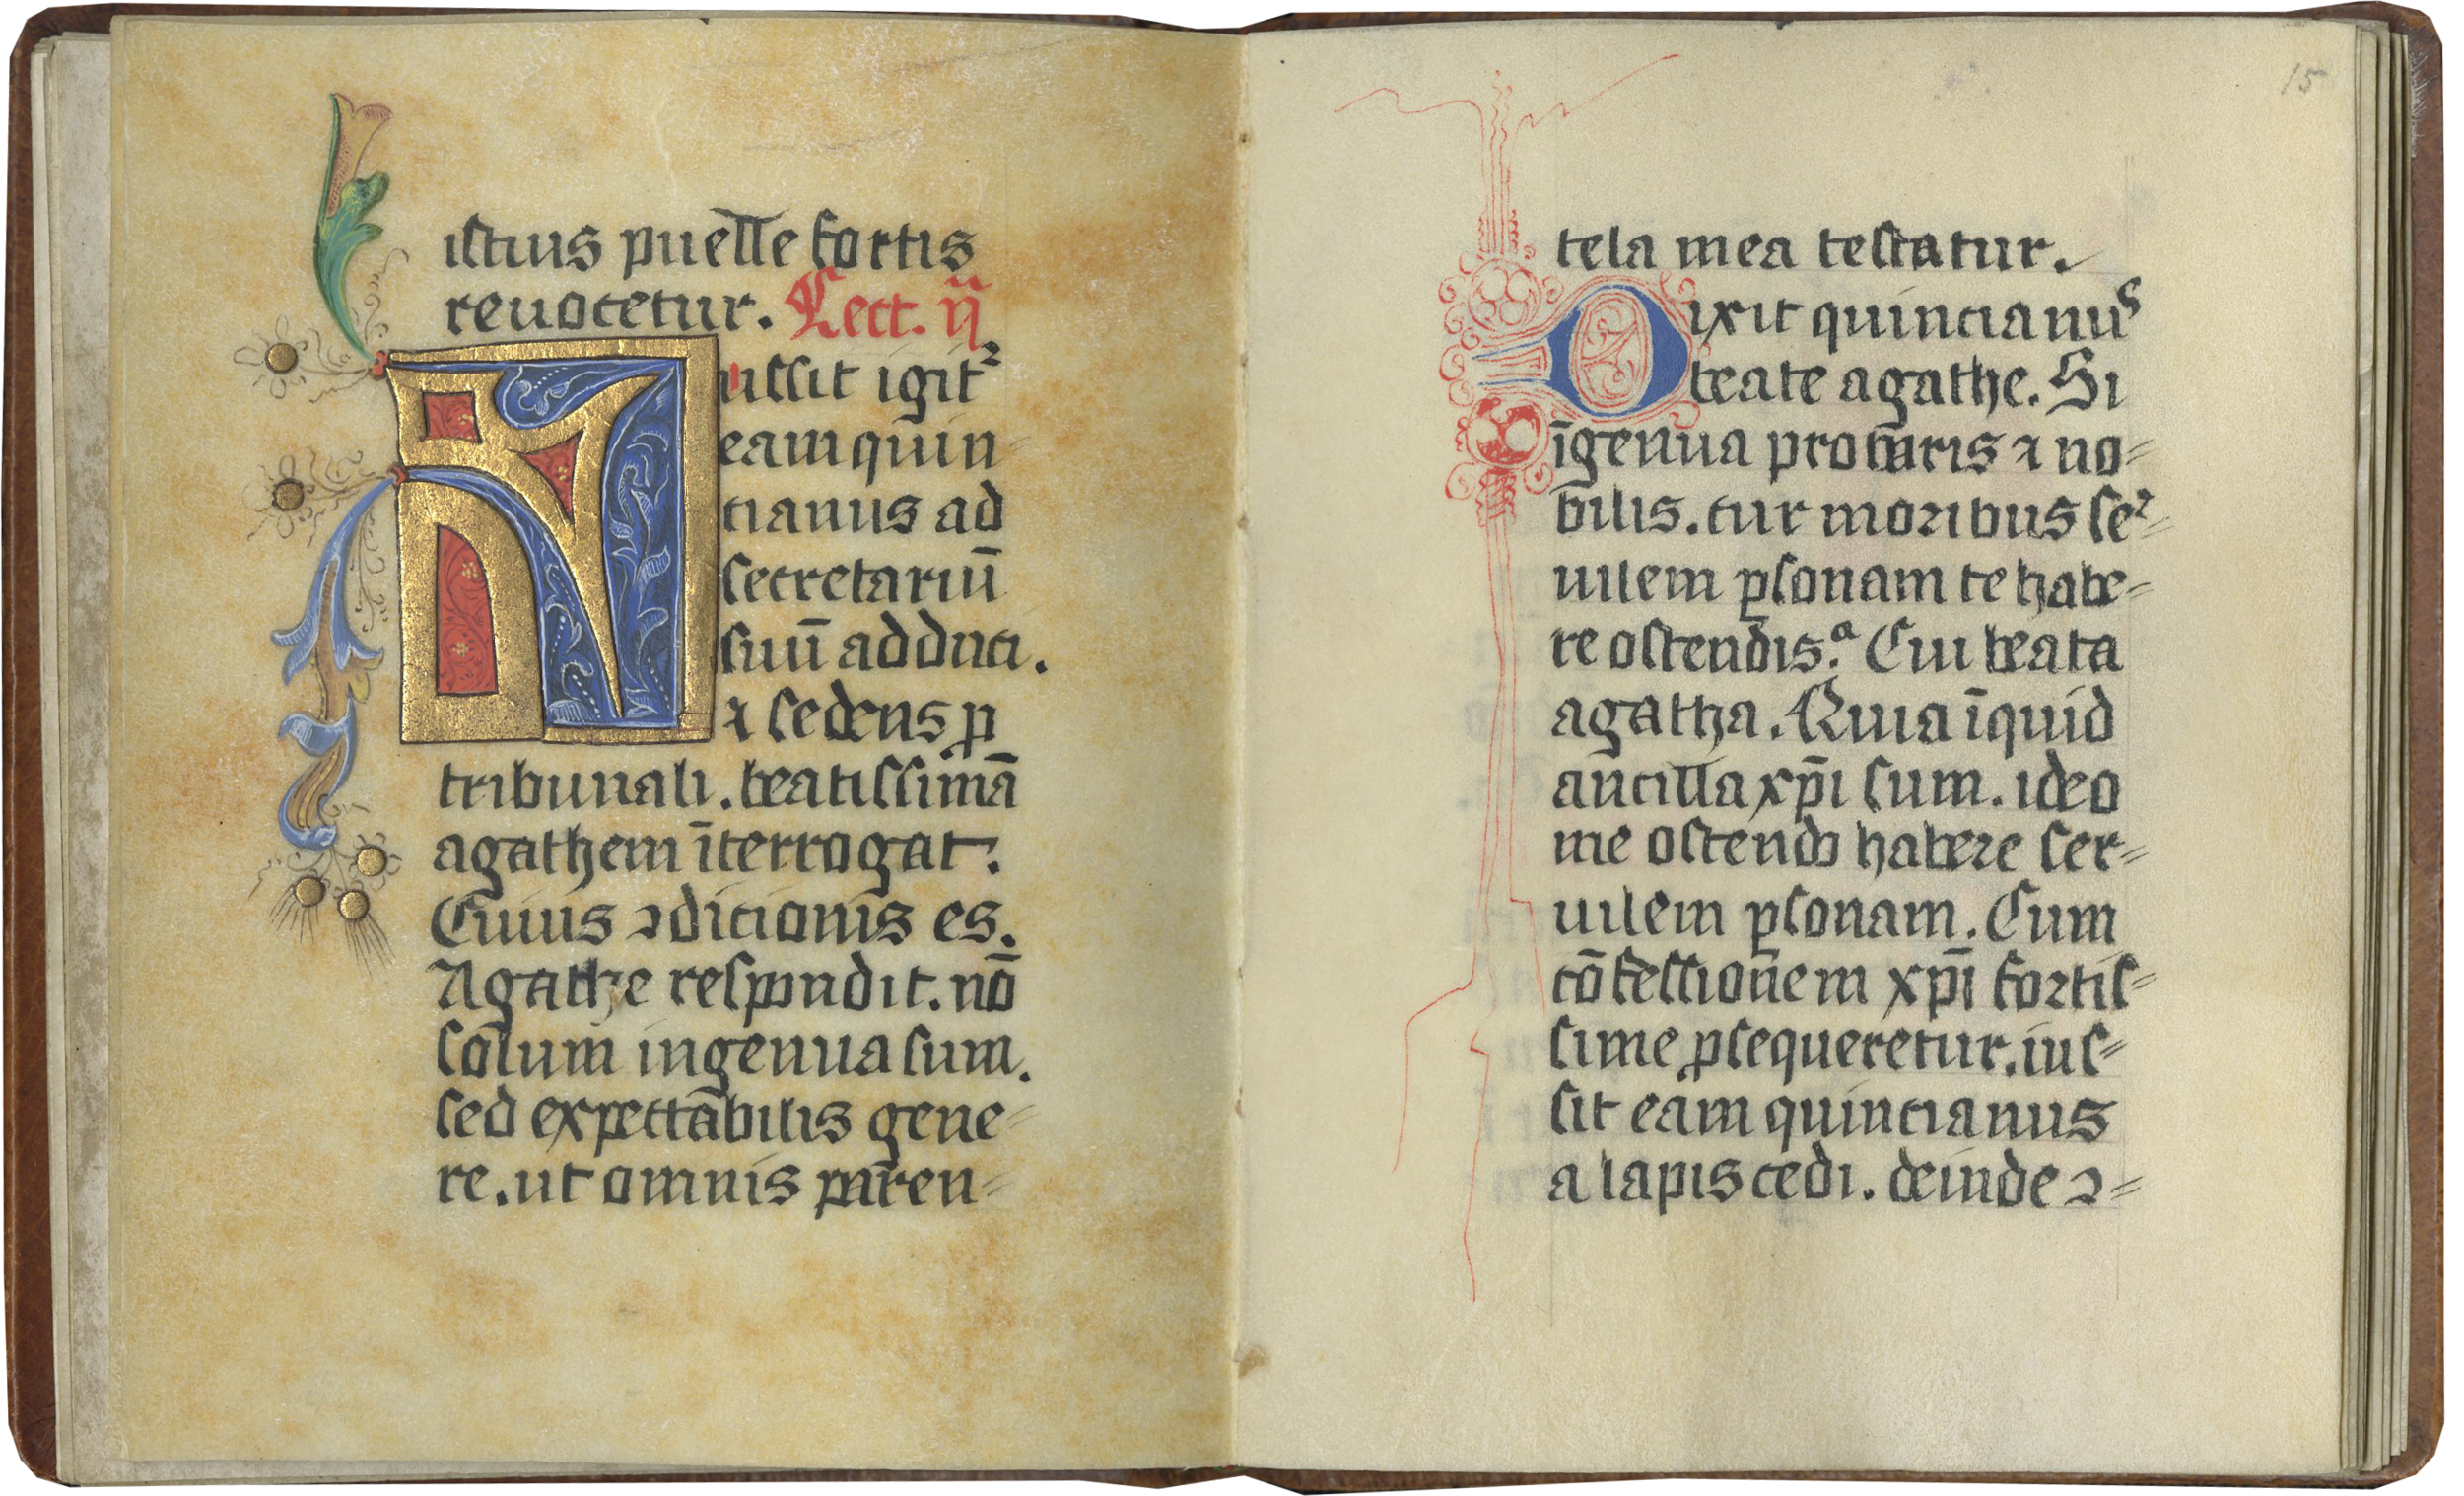 istius puelle fortis
reuocetur. Lect. ij
ussit igitᷣ
eam quin⸗
cianus ad
secretariū
suū adduci.
⁊ sedens ꝓ
tribunali. beatissimā
agathem īterrogat.
Cuius ↄdicionis es.
Agathe respondit. nō
solum ingenua sum.
sed expectābilis gene⸗
re. ut omnis paren⸗
15
tela mea testatur.
Dixit quincianus
beate agathe. Si
īgenua procuris ⁊ no⸗
bilis. cur moribus se⸗
uilem ꝑsonam te habe⸗
re ostendis. Cui beata
agatha. Quia īquid
ancilla xp̄i sum. ideo
me ostendo habere ser⸗
uilem ꝑsonam. Cum
cōfessionem xp̄i fortis⸗
sime ꝓsequeretur. ius⸗
sit eam quincianus
alapis cedi. deinde ↄ⸗